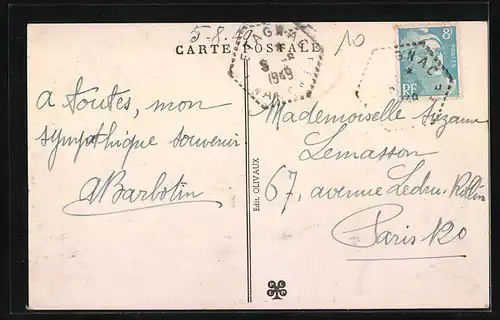 5-8.49
10
CARTE POSTALE
1949
8F
POSTES
RF
à toutes, mon
sympathique souvenir
ABarbotin
Edit. OLIVAUX
Mademoiselle Suzanne
Lemasson
67, avenue Ledru-Rollin
Paris 12o